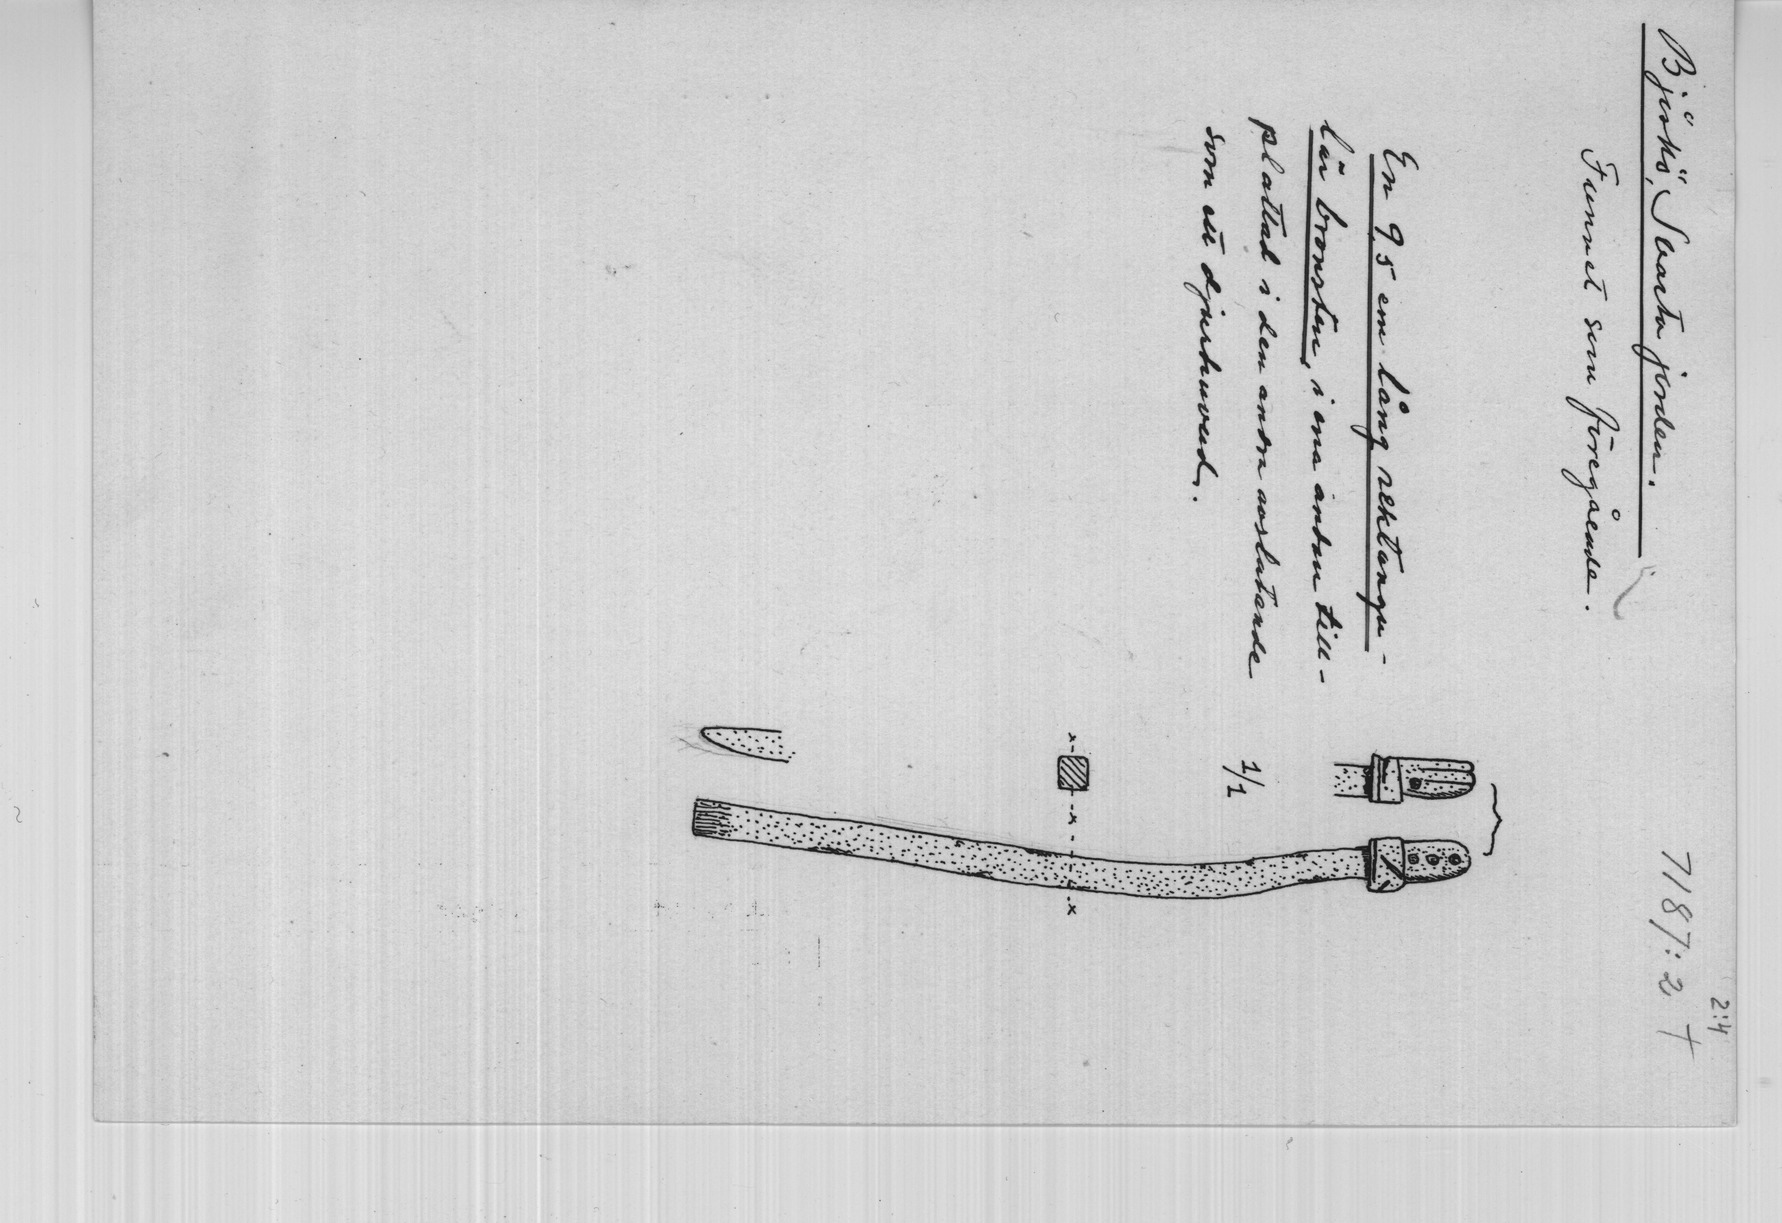 Björkö, Svarta jorden.
7187:2
2:4
Funnet som föregående.
En 9,5 cm lång rektangu-
lär bronsten, i ena ändan till-
plattad i den andra avslutande
som ett djurhuvud.
1/1
x
x
x